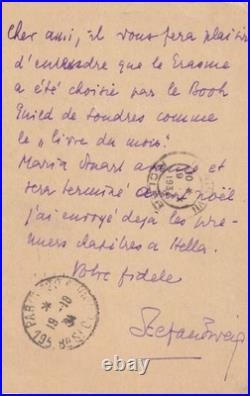 Cher ami, il vous fera plaisir
d'entendre que le Erasme
a été choisie par le Book
Guild de Londres comme
le „livre du mois".
Maria Stuart avance et
sera terminé avant noël
j'ai envoyé deja les pre-
miers chapitres à Hella.
Votre fidele
Stefan Zweig
PARIS
19-10
34